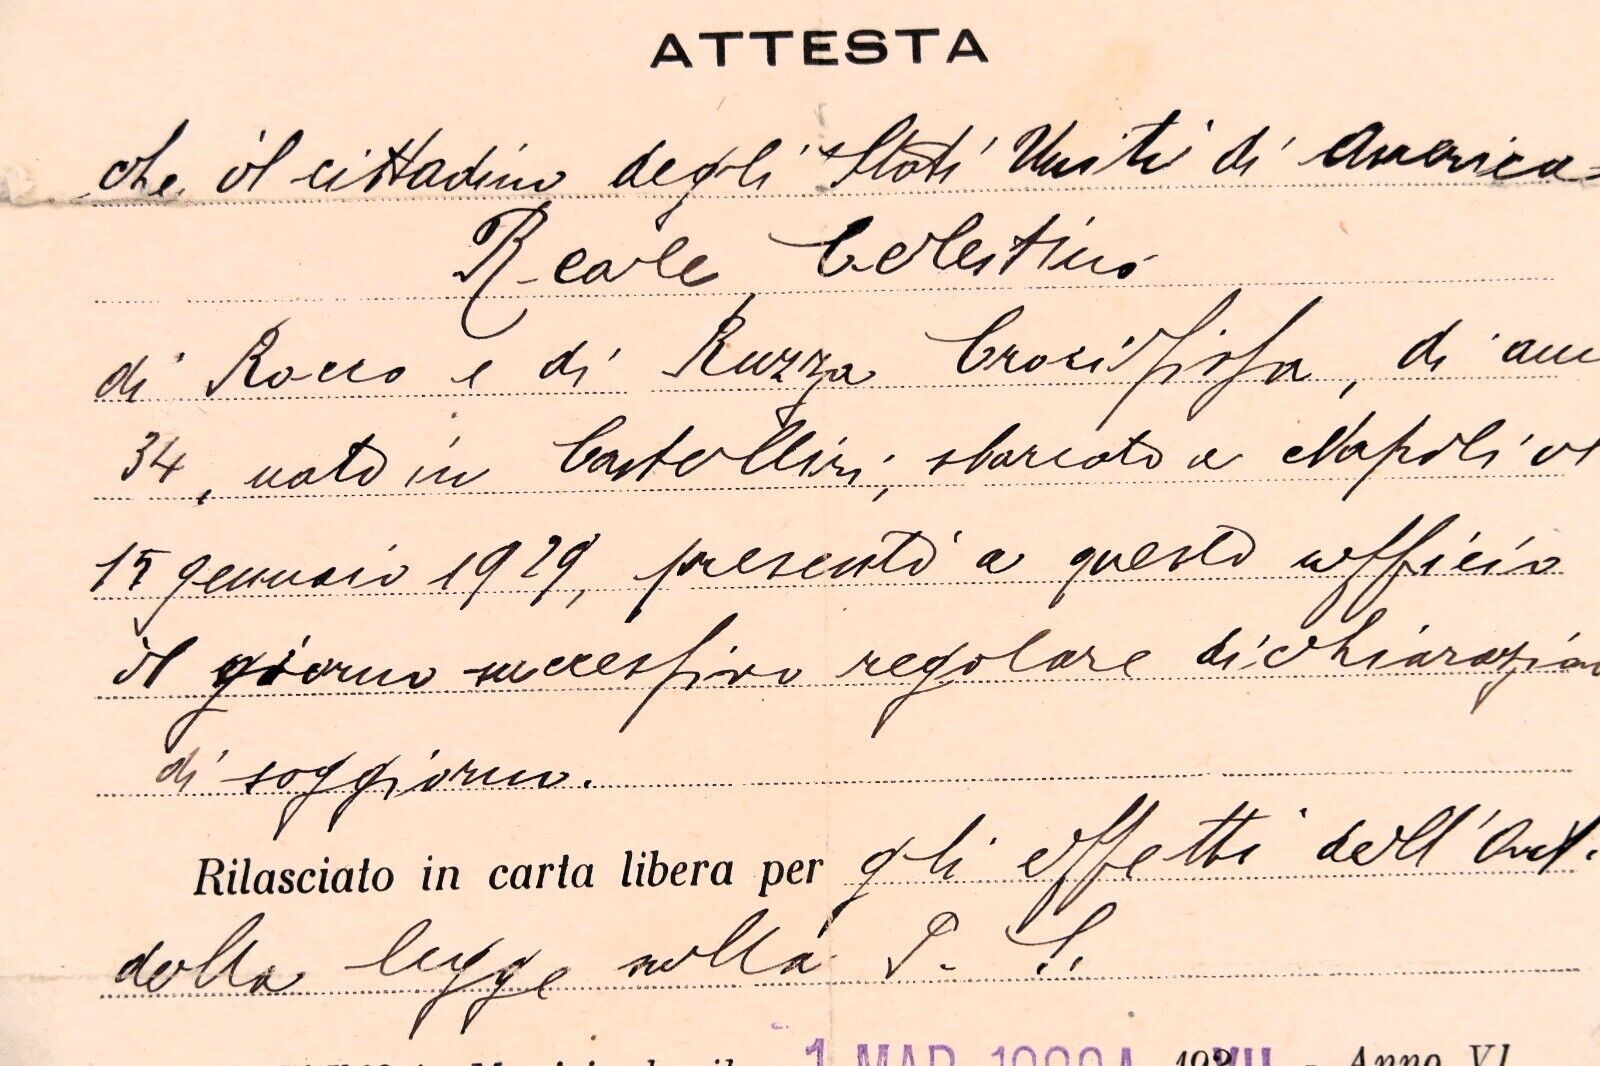 ATTESTA
che il cittadino degli Stati Uniti di America=
Reale Celestino
di Rocco e di Ruzza Crocifissa, di ann
34, nato in Castelliri, sbarcato a Napoli il
15 gennaio 1929, presentò a questo ufficio
il giorno successivo regolare dichiarazion
di soggiorno.
Rilasciato in carta libera per gli effetti dell'Art.
della legge sulla P. S.
1 MAR. 192 VII - Anno VI